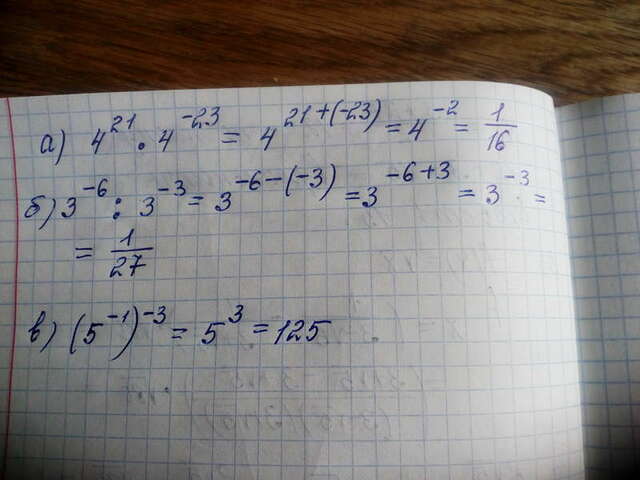 а) 4²¹ · 4⁻²³ = 4²¹⁺⁽⁻²³⁾ = 4⁻² = 1/16
б) 3⁻⁶ : 3⁻³ = 3⁻⁶⁻⁽⁻³⁾ = 3⁻⁶⁺³ = 3⁻³ =
= 1/27
в) (5⁻¹)⁻³ = 5³ = 125